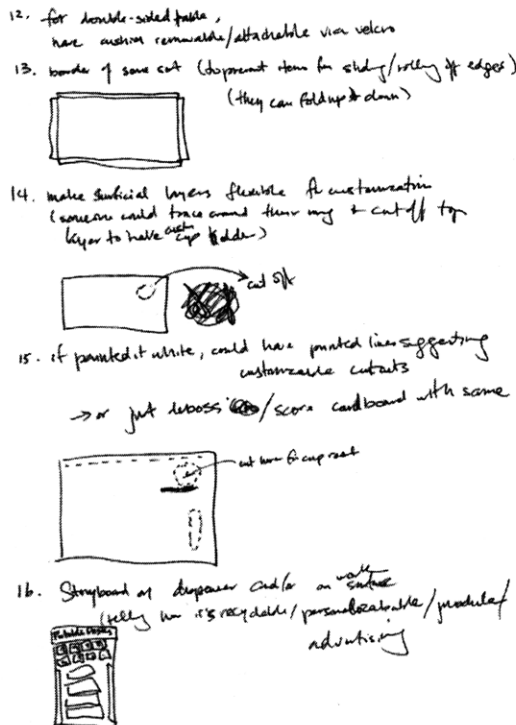 12. for double-sided table,
have cushion removable/attachable via velcro
13. border of some sort (to prevent items fr sliding/rolling off edges)
(they can fold up & down)
14. make surficial layers flexible for customization
(someone could trace around their mug & cut off top
layer to have custom cup holder)
cut off
15. if painted it white, could have printed lines suggesting
customizable cutouts
→ or just deboss /score cardboard with same
cut here for cup rest
16. Storyboard on dispenser and/or on work surface
(telling how it's recyclable/personalizable/modular/
advertising